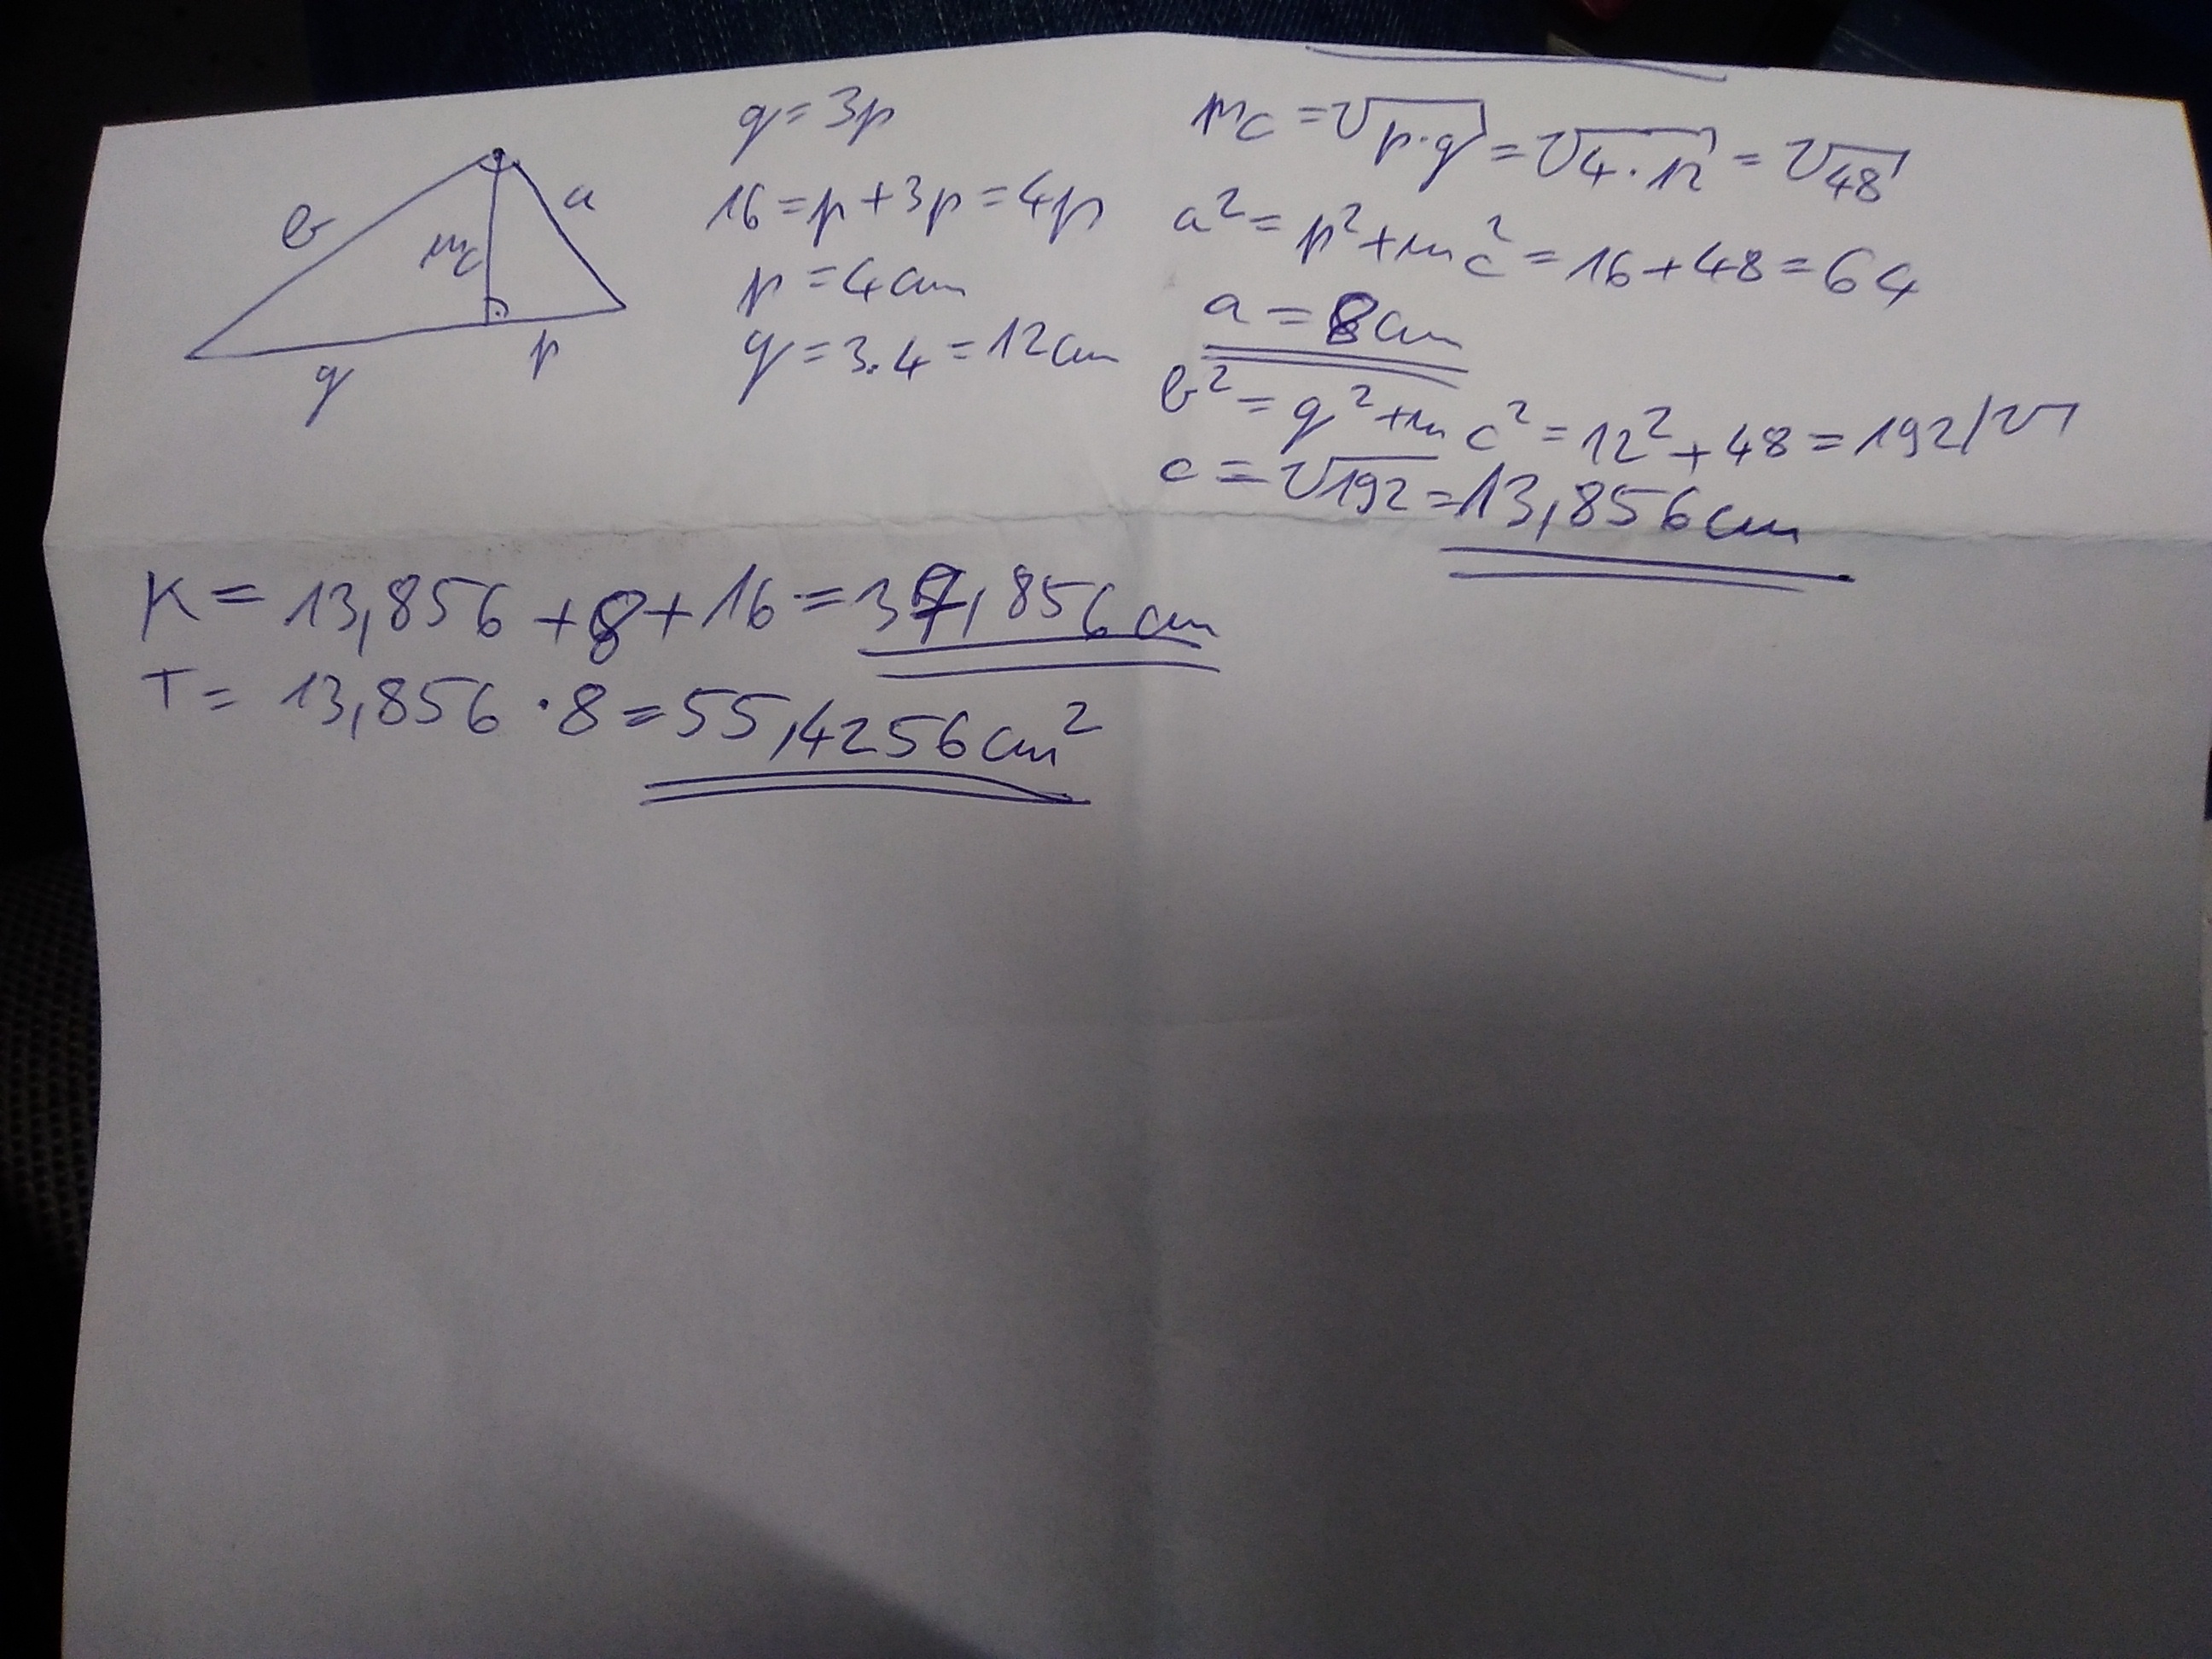 b
a
mc
q
p
q = 3p
16 = p + 3p = 4p
p = 4cm
q = 3.4 = 12cm
mc = √p·q = √4·12 = √48
a² = p² + mc² = 16 + 48 = 64
a = 8cm
b² = q² + mc² = 12² + 48 = 192 /√
c = √192 = 13,856cm
K = 13,856 + 8 + 16 = 37,856cm
T = 13,856 · 8 = 55,4256cm²